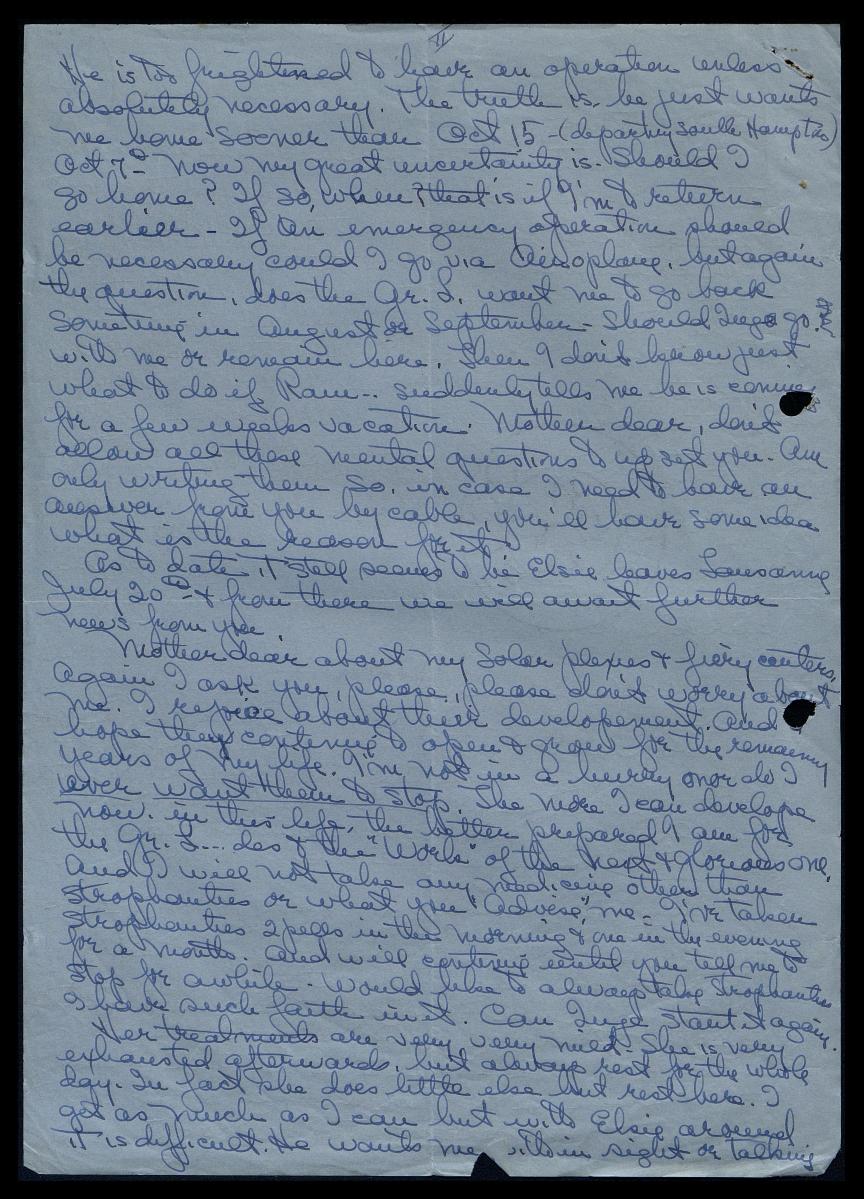 II
He is too frightened to have an operation unless
absolutely necessary. The truth is he just wants
me home sooner than Oct 15 - (depart my South Hampton)
Oct 7th Now my great uncertainty is. Should I
go home? If so, when? that is if I'm to return
earlier - If an emergency operation should
be necessary could I go via Airoplane, but again
the question, does the Gr. S. want me to go back
sometime in August or September - Should Inge go
with me or remain here. Then I don't know just
what to do if Ram.. suddenly tells me he is coming
for a few weeks vacation. Mother dear, don't
allow all these mental questions to upset you. Am
only writing them so, in case I need to have an
answer from you by cable, you'll have some idea
what is the reason for it.
As to date it still seems to be Elsie leaves Lausanne
July 20th & from there we will await further
news from you
Mother dear about my Solar plexes & fiery centers,
Again I ask you, please, please don't worry about
me. I rejoice about their developement. And
hope they continue to open & grow for the remaining
years of my life. I'm not in a hurry nor do I
ever want them to stop. The more I can develope
now. in this life, the better prepared I am for
the Gr. S... des & the "Work" of the next & glorious one.
And I will not take any medicine other than
strophanties or what you "Advise" me - I've taken
strophanties 2 pills in the morning & one in the evening
for a month. And will continue until you tell me to
stop for awhile. Would like to always take Strophanties
I have such faith in it. Can Inge start it again.
Her treatments are very very mild. She is very
exhausted afterwards, but always rest for the whole
day. In fact she does little else but rest here. I
get as much as I can but with Elsie around
it is difficult. He wants me within sight or talking